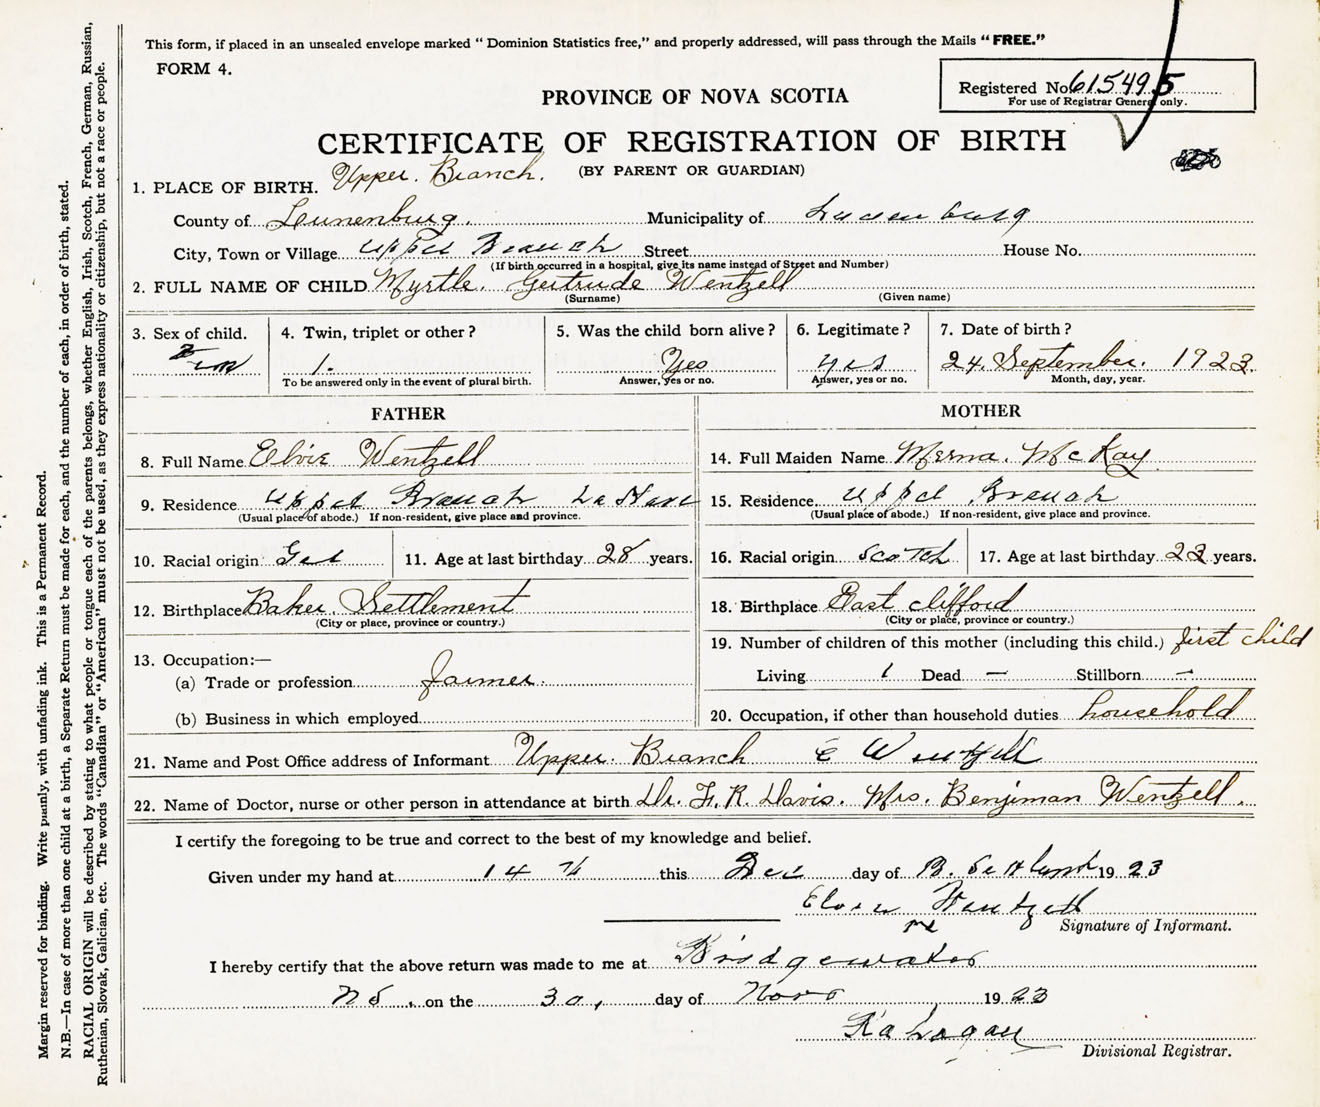 This form, if placed in an unsealed envelope marked “ Dominion Statistics free,” and properly addressed, will pass through the Mails “FREE.”
FORM 4.
Registered No. 615495
For use of Registrar General only.
PROVINCE OF NOVA SCOTIA
CERTIFICATE OF REGISTRATION OF BIRTH
(BY PARENT OR GUARDIAN)
1. PLACE OF BIRTH. Upper. Branch.
County of Lunenburg. Municipality of Lunenburg
City, Town or Village Upper Branch Street House No.
(If birth occurred in a hospital, give its name instead of Street and Number)
2. FULL NAME OF CHILD Myrtle. Gertrude Wentzell
(Surname) (Given name)
3. Sex of child. 4. Twin, triplet or other ? 5. Was the child born alive ? 6. Legitimate ? 7. Date of birth ?
1. Yes yes 24. September. 1923.
To be answered only in the event of plural birth. Answer, yes or no. Answer, yes or no. Month, day, year.
FATHER MOTHER
8. Full Name Elvie Wentzell 14. Full Maiden Name Merna. McKay
9. Residence Upper Branch La Have 15. Residence Upper Branch
(Usual place of abode.) If non-resident, give place and province. (Usual place of abode.) If non-resident, give place and province.
10. Racial origin Ger 11. Age at last birthday 28 years. 16. Racial origin Scotch 17. Age at last birthday 22 years.
12. Birthplace Baker. Settlement 18. Birthplace East clifford
(City or place, province or country.) (City or place, province or country.)
19. Number of children of this mother (including this child.) first child
13. Occupation:—
(a) Trade or profession farmer. Living 1 Dead — Stillborn —
(b) Business in which employed 20. Occupation, if other than household duties household
21. Name and Post Office address of Informant Upper. Branch E Wentzell
22. Name of Doctor, nurse or other person in attendance at birth Dr. F. R. Davis. Mrs. Benjiman Wentzell.
I certify the foregoing to be true and correct to the best of my knowledge and belief.
Given under my hand at 14 this Dec day of 1923
Wentzell
Signature of Informant.
I hereby certify that the above return was made to me at Bridgewater
NS. on the 30, day of Nov 1923
Logan
Divisional Registrar.
Margin reserved for binding. Write plainly, with unfading ink. This is a Permanent Record.
N.B.—In case of more than one child at a birth, a Separate Return must be made for each, and the number of each, in order of birth, stated.
RACIAL ORIGIN will be described by stating to what people or tongue each of the parents belongs, whether English, Irish, Scotch, French, German, Russian,
Ruthenian, Slovak, Galician, etc. The words “Canadian” or “American” must not be used, as they express nationality or citizenship, but not a race or people.